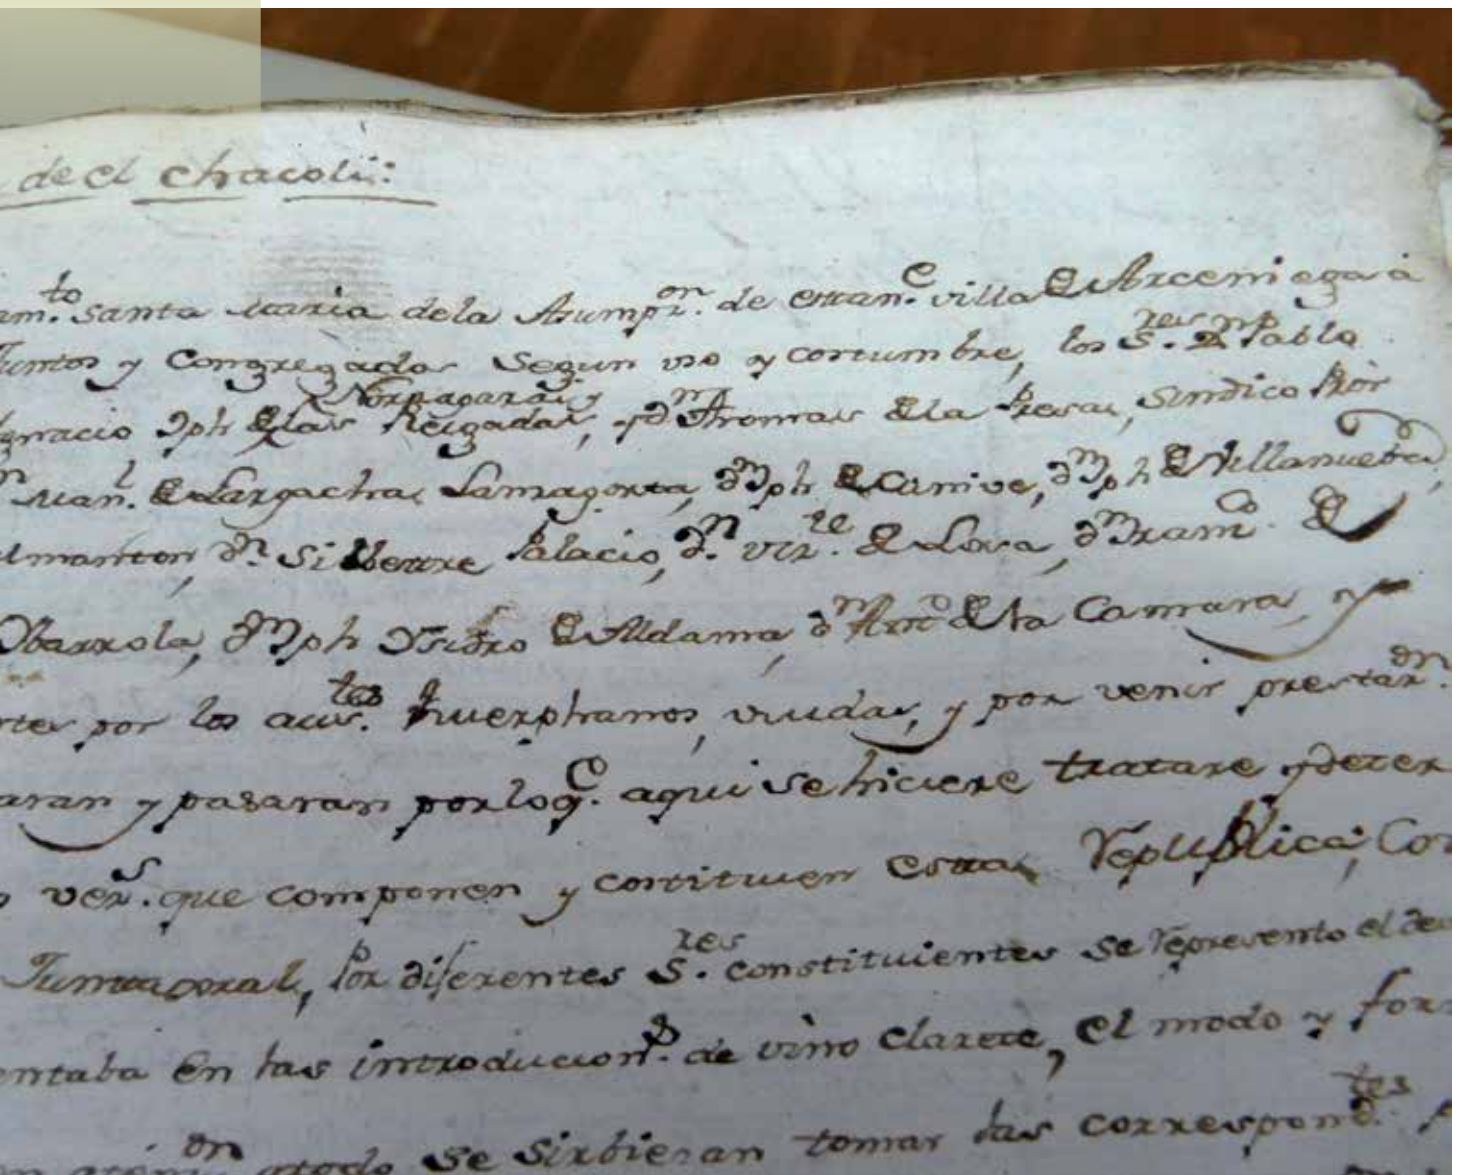 de el chacolii:
am.to santa maria dela Asumpz.on de esta n.e villa de Arceniega à
Juntos y Congregados Segun vso y costumbre, los S.res D.n Pablo
Norzagarai y
Ignacio Jph de las Reigadas, y d.n Thomas de la Presa, Sindico Pror
Man.l de Largacha Lanzagorta, d.n Jph de Canive, d.n Jph de Villanueba,
almanton, d.n Silbestre Palacio, d.n Viz.te de Lova, d.n Fram.co de
Ybarrola, d.n Jph Ysidro de Aldama, d.n Ant.o de la Camara, y
rtes por los aus.tes Huerphanos, viudas, y por venir prestaz.on
aran y pasaran por lo q.e aqui se hiciere tratare y deter
vez.s que componen y constituien esta Republica, Con
Junta goral, Por diferentes S.res constituientes se represento el de
entaba En las introducion.s de vino clarete, el modo y for
on atodo se Sirbieran tomar las correspond.tes